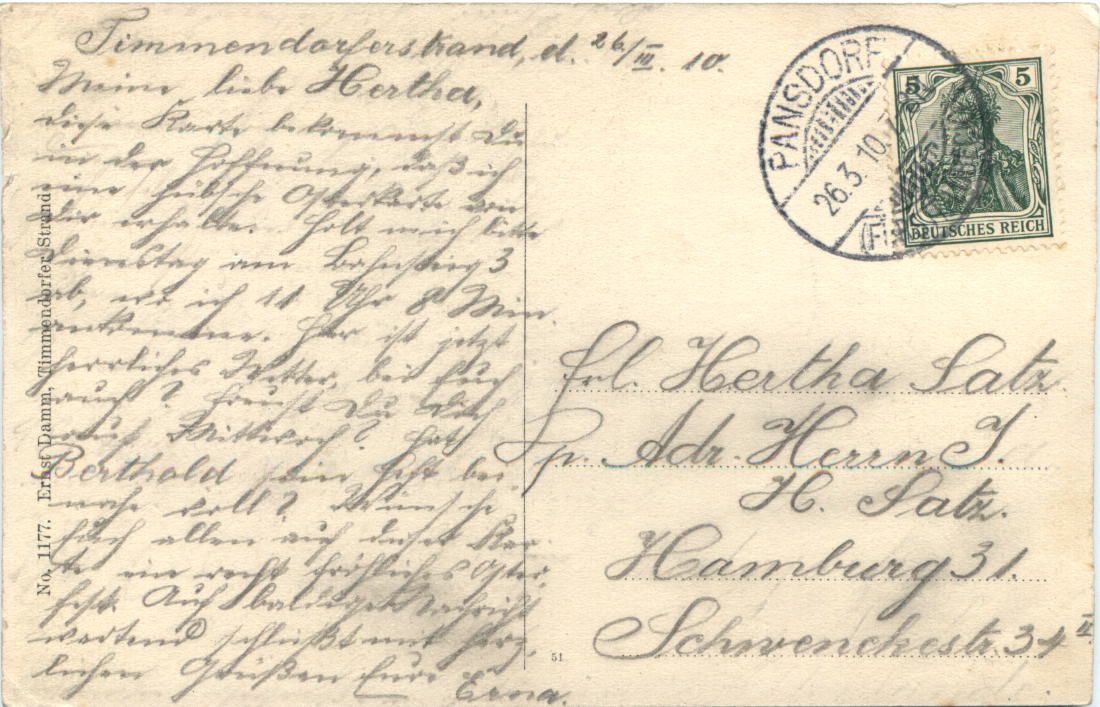 Timmendorferstrand, d. 26/III. 10.
Meine liebe Hertha,
diese Karte bekommst Du
in der Hoffnung, daß ich
eine hübsche Osterkarte von
Dir erhalte. Holt mich bitte
Dienstag am Bahnsteig 3
ab, wo ich 11 Uhr 8 Min.
ankomme. Hier ist jetzt
herrliches Wetter, bei Euch
auch? Freust Du Dich
auf Mittwoch? Hat
Berthold sein Heft bei-
nahe voll? Wünsche
Euch allen auf dieser Kar-
te ein recht fröhliches Oster-
fest. Auf baldige Nachricht
wartend schließt mit herz-
lichen Grüßen Eure
Erna.
No. 1177. Ernst Damm, Timmendorfer Strand
51
PANSDORF
26.3.10.
5 5
DEUTSCHES REICH
Frl. Hertha Satz
p. Adr. Herrn J.
H. Satz.
Hamburg 31.
Schwenckestr. 34 II